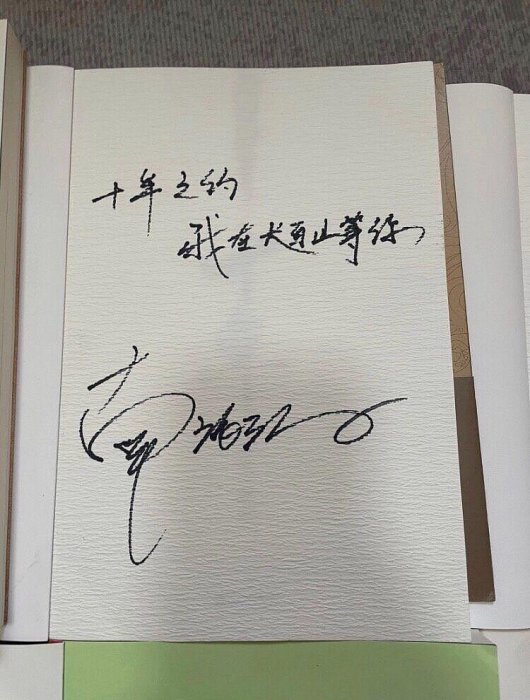 十年之约
我在长白山等你
南派三叔